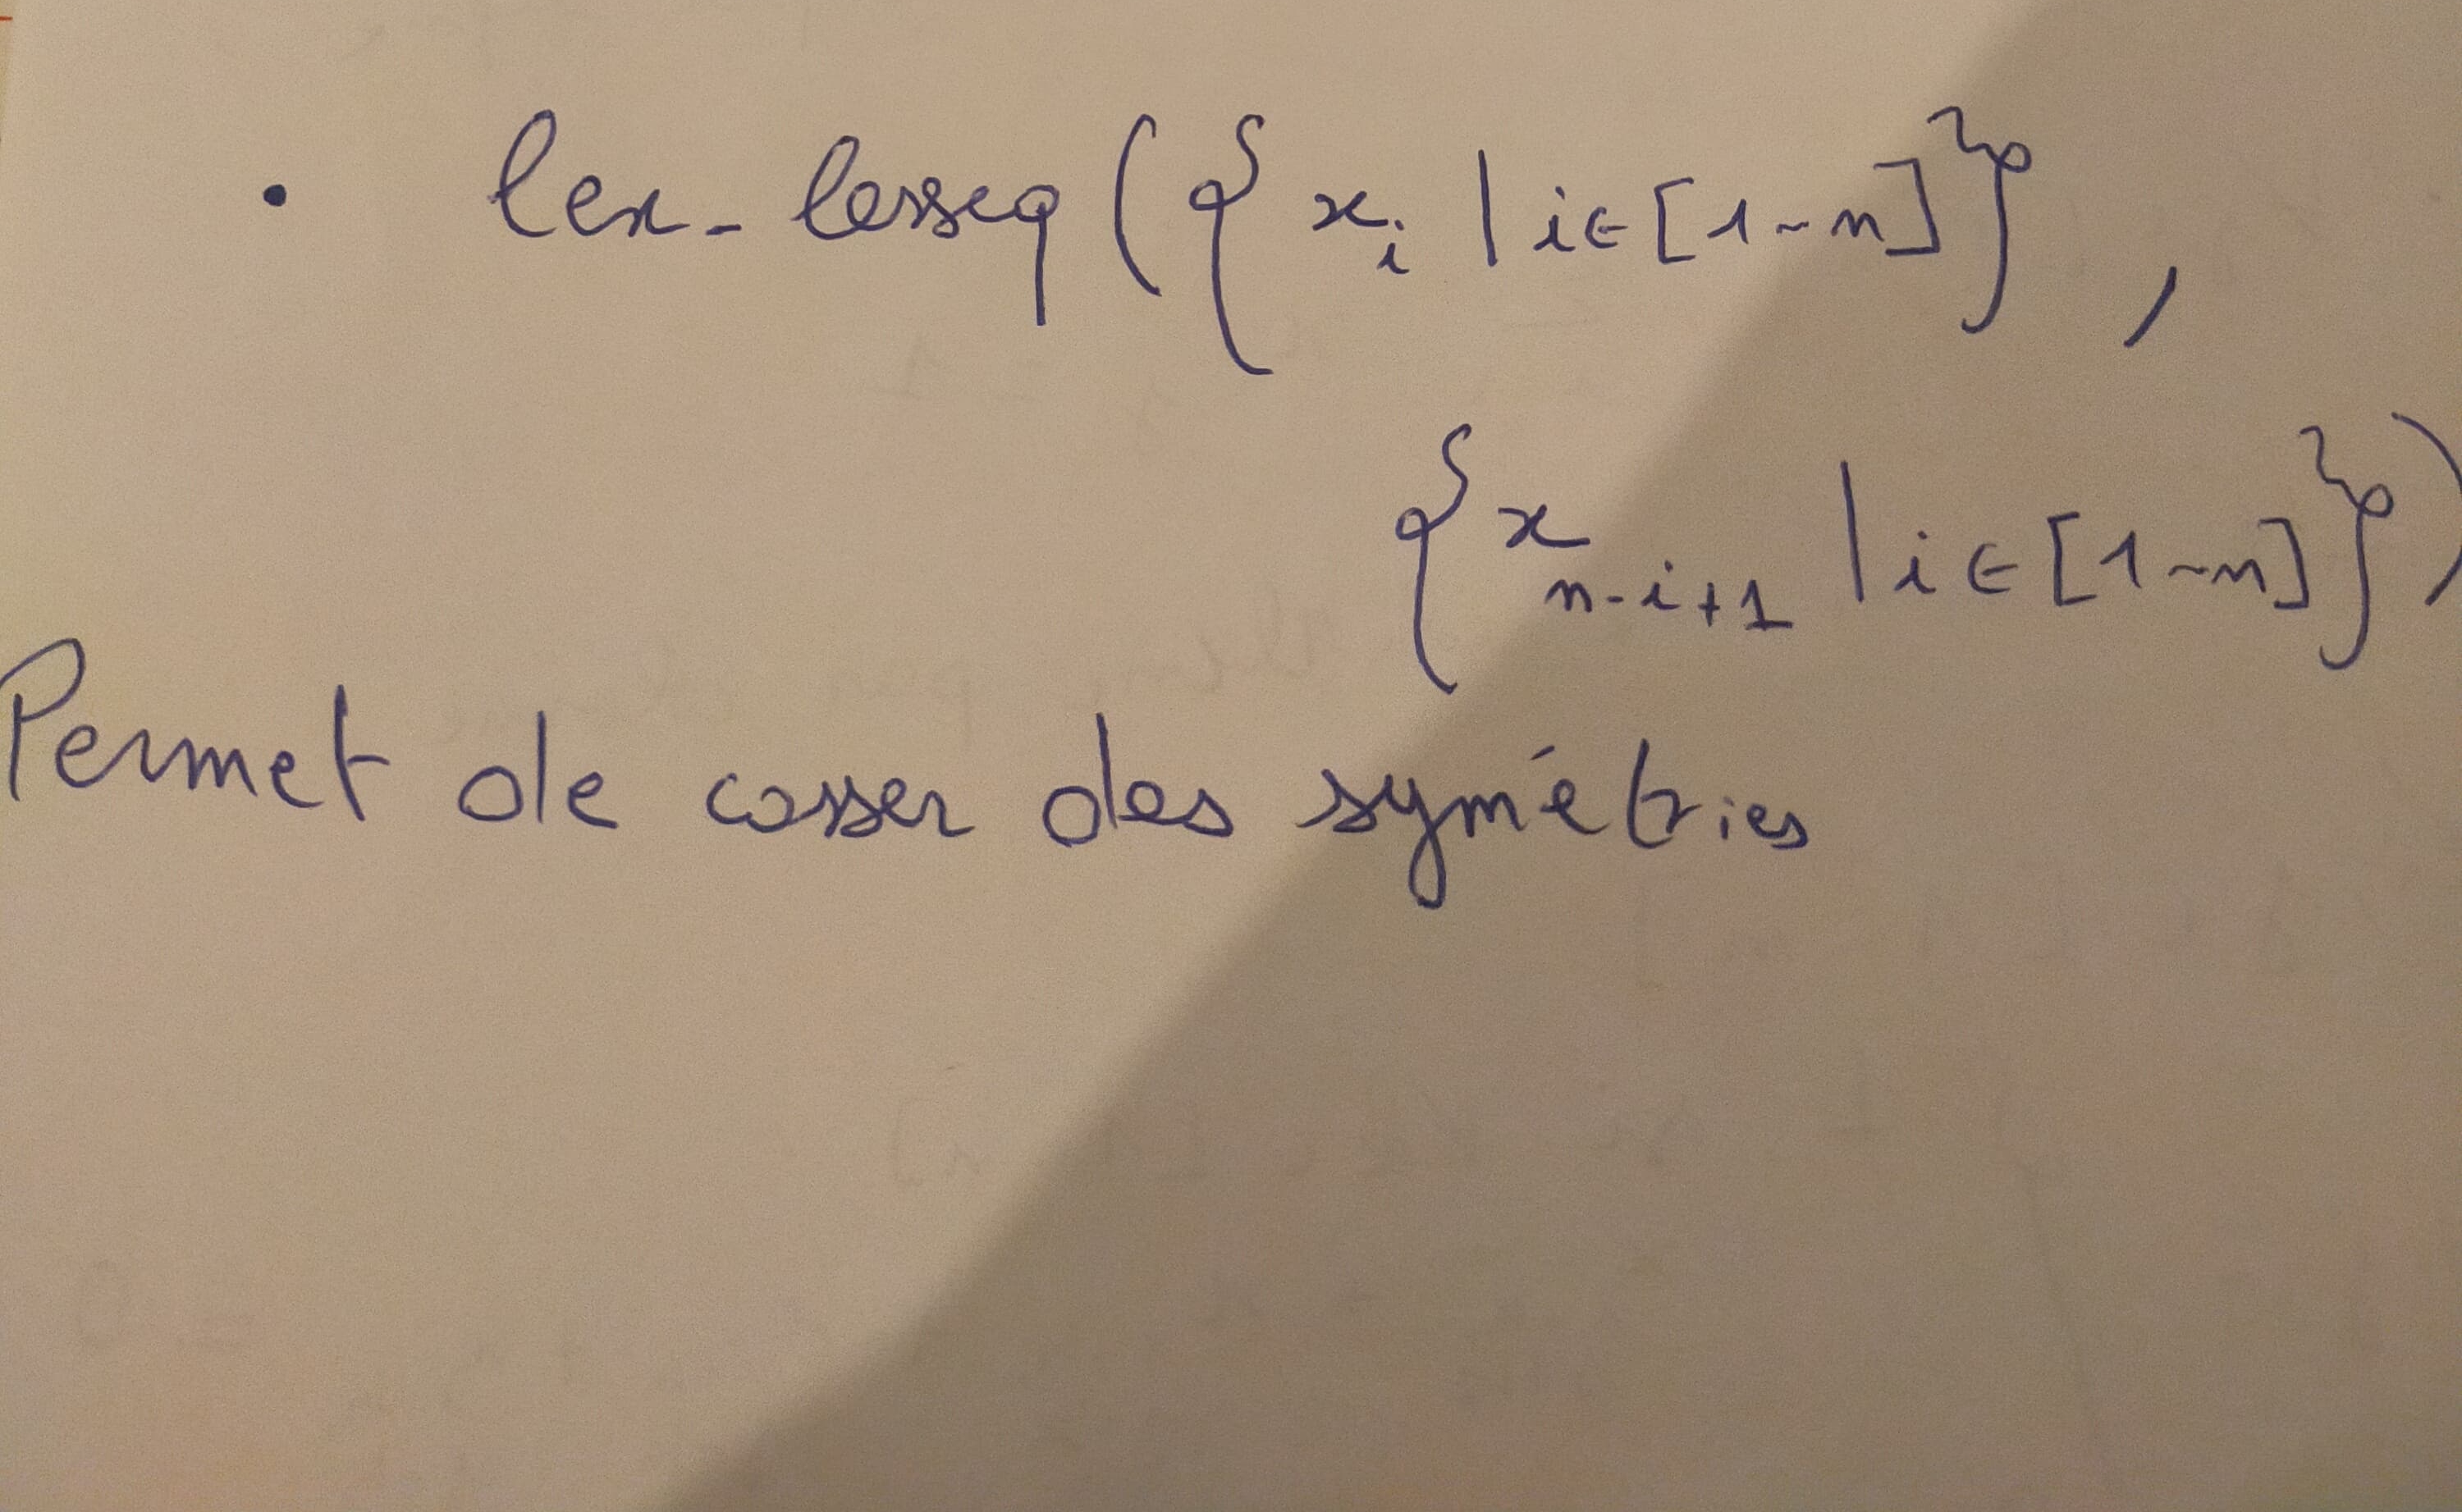 • lex_lesseq ({ x_i | i ∈ [1--n] } ,
{ x_{n-i+1} | i ∈ [1--n] })
Permet de casser des symétries